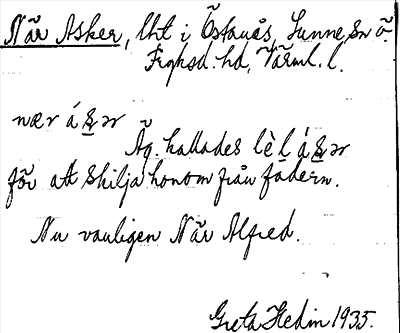 När Asker, lht i Östanås, Sunne sn ö.
Fryksd. hd, Värml. l.
nær áꞩər
Äg. kallades lèḷáꞩər
för att skilja honom från fadern.
Nu vanligen När Alfred.
Greta Hedin 1935.